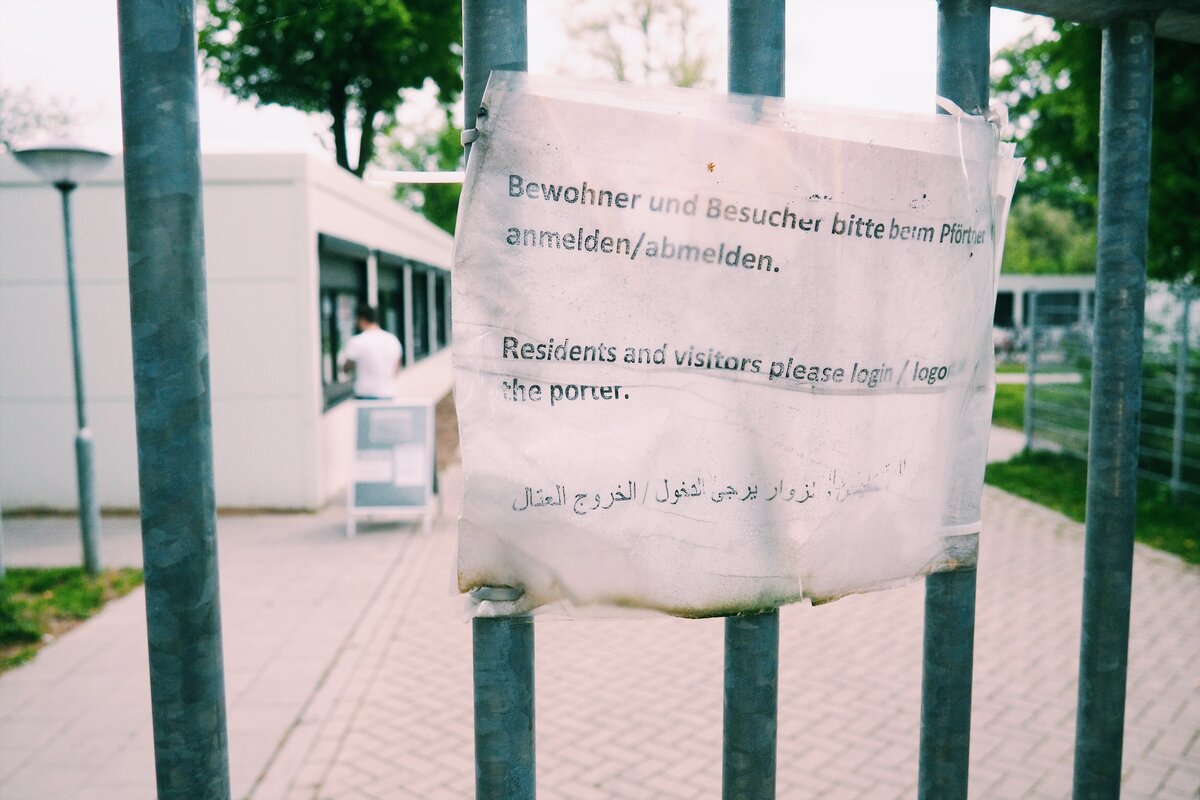 Bewohner und Besucher bitte beim Pförtner
anmelden/abmelden.
Residents and visitors please login / logo
the porter.
زوار يرجى الدخول / الخروج العتال